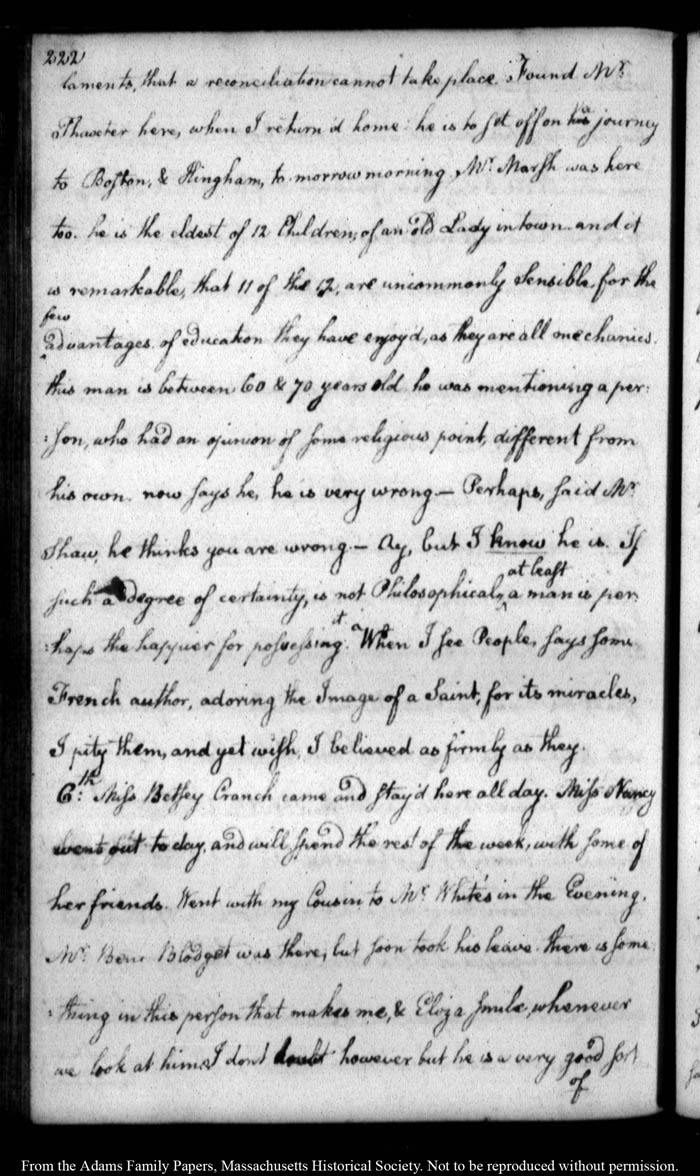 222
laments, that a reconciliation cannot take place. Found Mr.
Thaxter here, when I return'd home: he is to set off on a journey
to Boston, & Hingham, to-morrow morning. Mr. Marsh was here
too. he is the eldest of 12 Children, of an old Lady in town. and it
is remarkable, that 11 of the 12, are uncommonly sensible, for the
few
advantages of education they have enjoy'd, as they are all mechanics.
this man is between 60 & 70 years old. he was mentioning a per:
:son, who had an opinion of some religious point, different from
his own. now says he, he is very wrong— Perhaps, said Mr.
Shaw, he thinks you are wrong— Ay, but I know he is. If
at least
such a degree of certainty, is not Philosophical, a man is per
it.
:haps the happier for possessing "When I see People, says some
French author, adoring the Image of a Saint, for its miracles,
I pity them, and yet wish, I believed as firmly as they.
6:th Miss Betsey Cranch came and stay'd here all day. Miss Nancy
went out to day, and will spend the rest of the week, with some of
her friends. Went with my Cousin to Mr. White's in the Evening.
Mr. Blodget was there, but soon took his leave. there is some
:thing in this person that makes me, & Eliza smile, whenever
we look at him. I don't doubt however but he is a very good sort
of
From the Adams Family Papers, Massachusetts Historical Society. Not to be reproduced without permission.